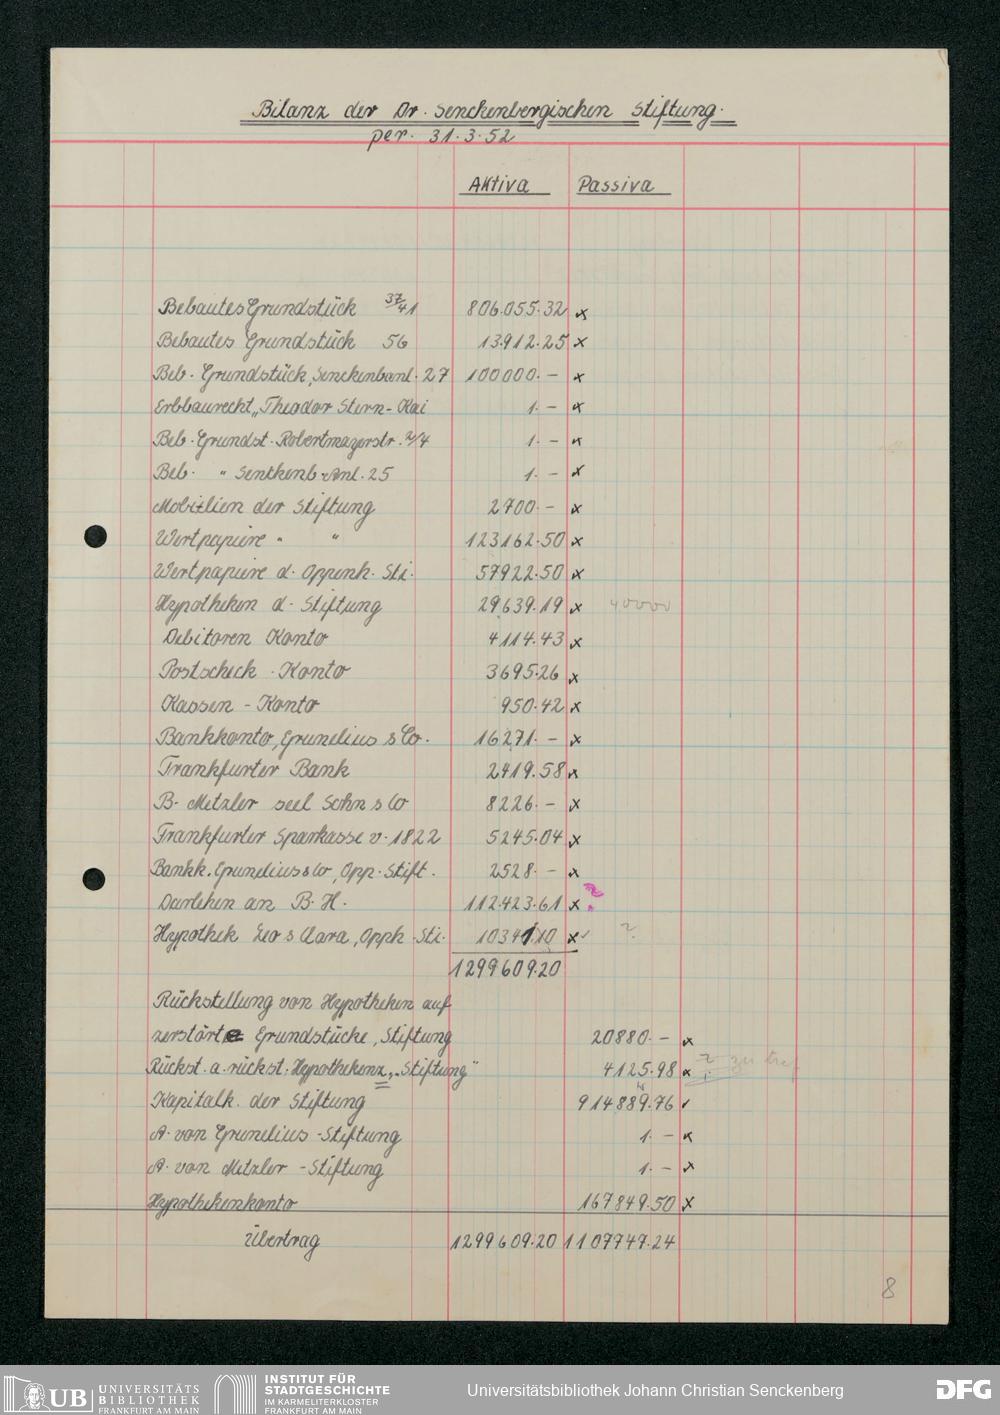 Bilanz der Dr. Senckenbergischen Stiftung.
per. 31.3.52
Aktiva Passiva
Bebautes Grundstück 37/41 806.055.32 x
Bebautes Grundstück 56 13.912.25 x
Beb. Grundstück, Senckenbanl. 27 100000.- x
Erbbaurecht "Theodor Stern-Kai 1.- x
Beb. Grundst. Robertmayerstr. 2/4 1.- x
Beb. " Senckenb-Anl. 25 1.- x
Mobilien der Stiftung 2700.- x
Wertpapiere " " 123162.50 x
Wertpapiere d. Oppenh. Sti. 57922.50 x
Hypotheken d. Stiftung 29639.19 x 40000
Debitoren Konto 4114.43 x
Postscheck - Konto 3695.26 x
Kassen - Konto 950.42 x
Bankkonto, Grunelius & Co. 16271.- x
Frankfurter Bank 2419.58 x
B. Metzler seel Sohn & Co 8226.- x
Frankfurter Sparkasse v. 1822 5245.04 x
Bankk. Grunelius & Co, Opp. Stift. 2528.- x
Darlehen an B. H. 112.423.61 x ?
Hypothek Leo & Clara, Opph. Sti. 10341.10 x ✓ ?
1299609.20
Rückstellung von Hypotheken auf
zerstörte Grundstücke, Stiftung 20880.- x
Rückst. a. rückst. Hypothekenz, "Stiftung" 4125.98 x ?
Kapitalk. der Stiftung 914889.76 ✓
A. von Grunelius - Stiftung 1.- x
A. von Metzler - Stiftung 1.- x
Hypothekenkonto 167849.50 x
Übertrag 1299609.20 1107747.24
8
UB UNIVERSITÄTS
BIBLIOTHEK
FRANKFURT AM MAIN
INSTITUT FÜR
STADTGESCHICHTE
IM KARMELITERKLOSTER
FRANKFURT AM MAIN
Universitätsbibliothek Johann Christian Senckenberg
DFG